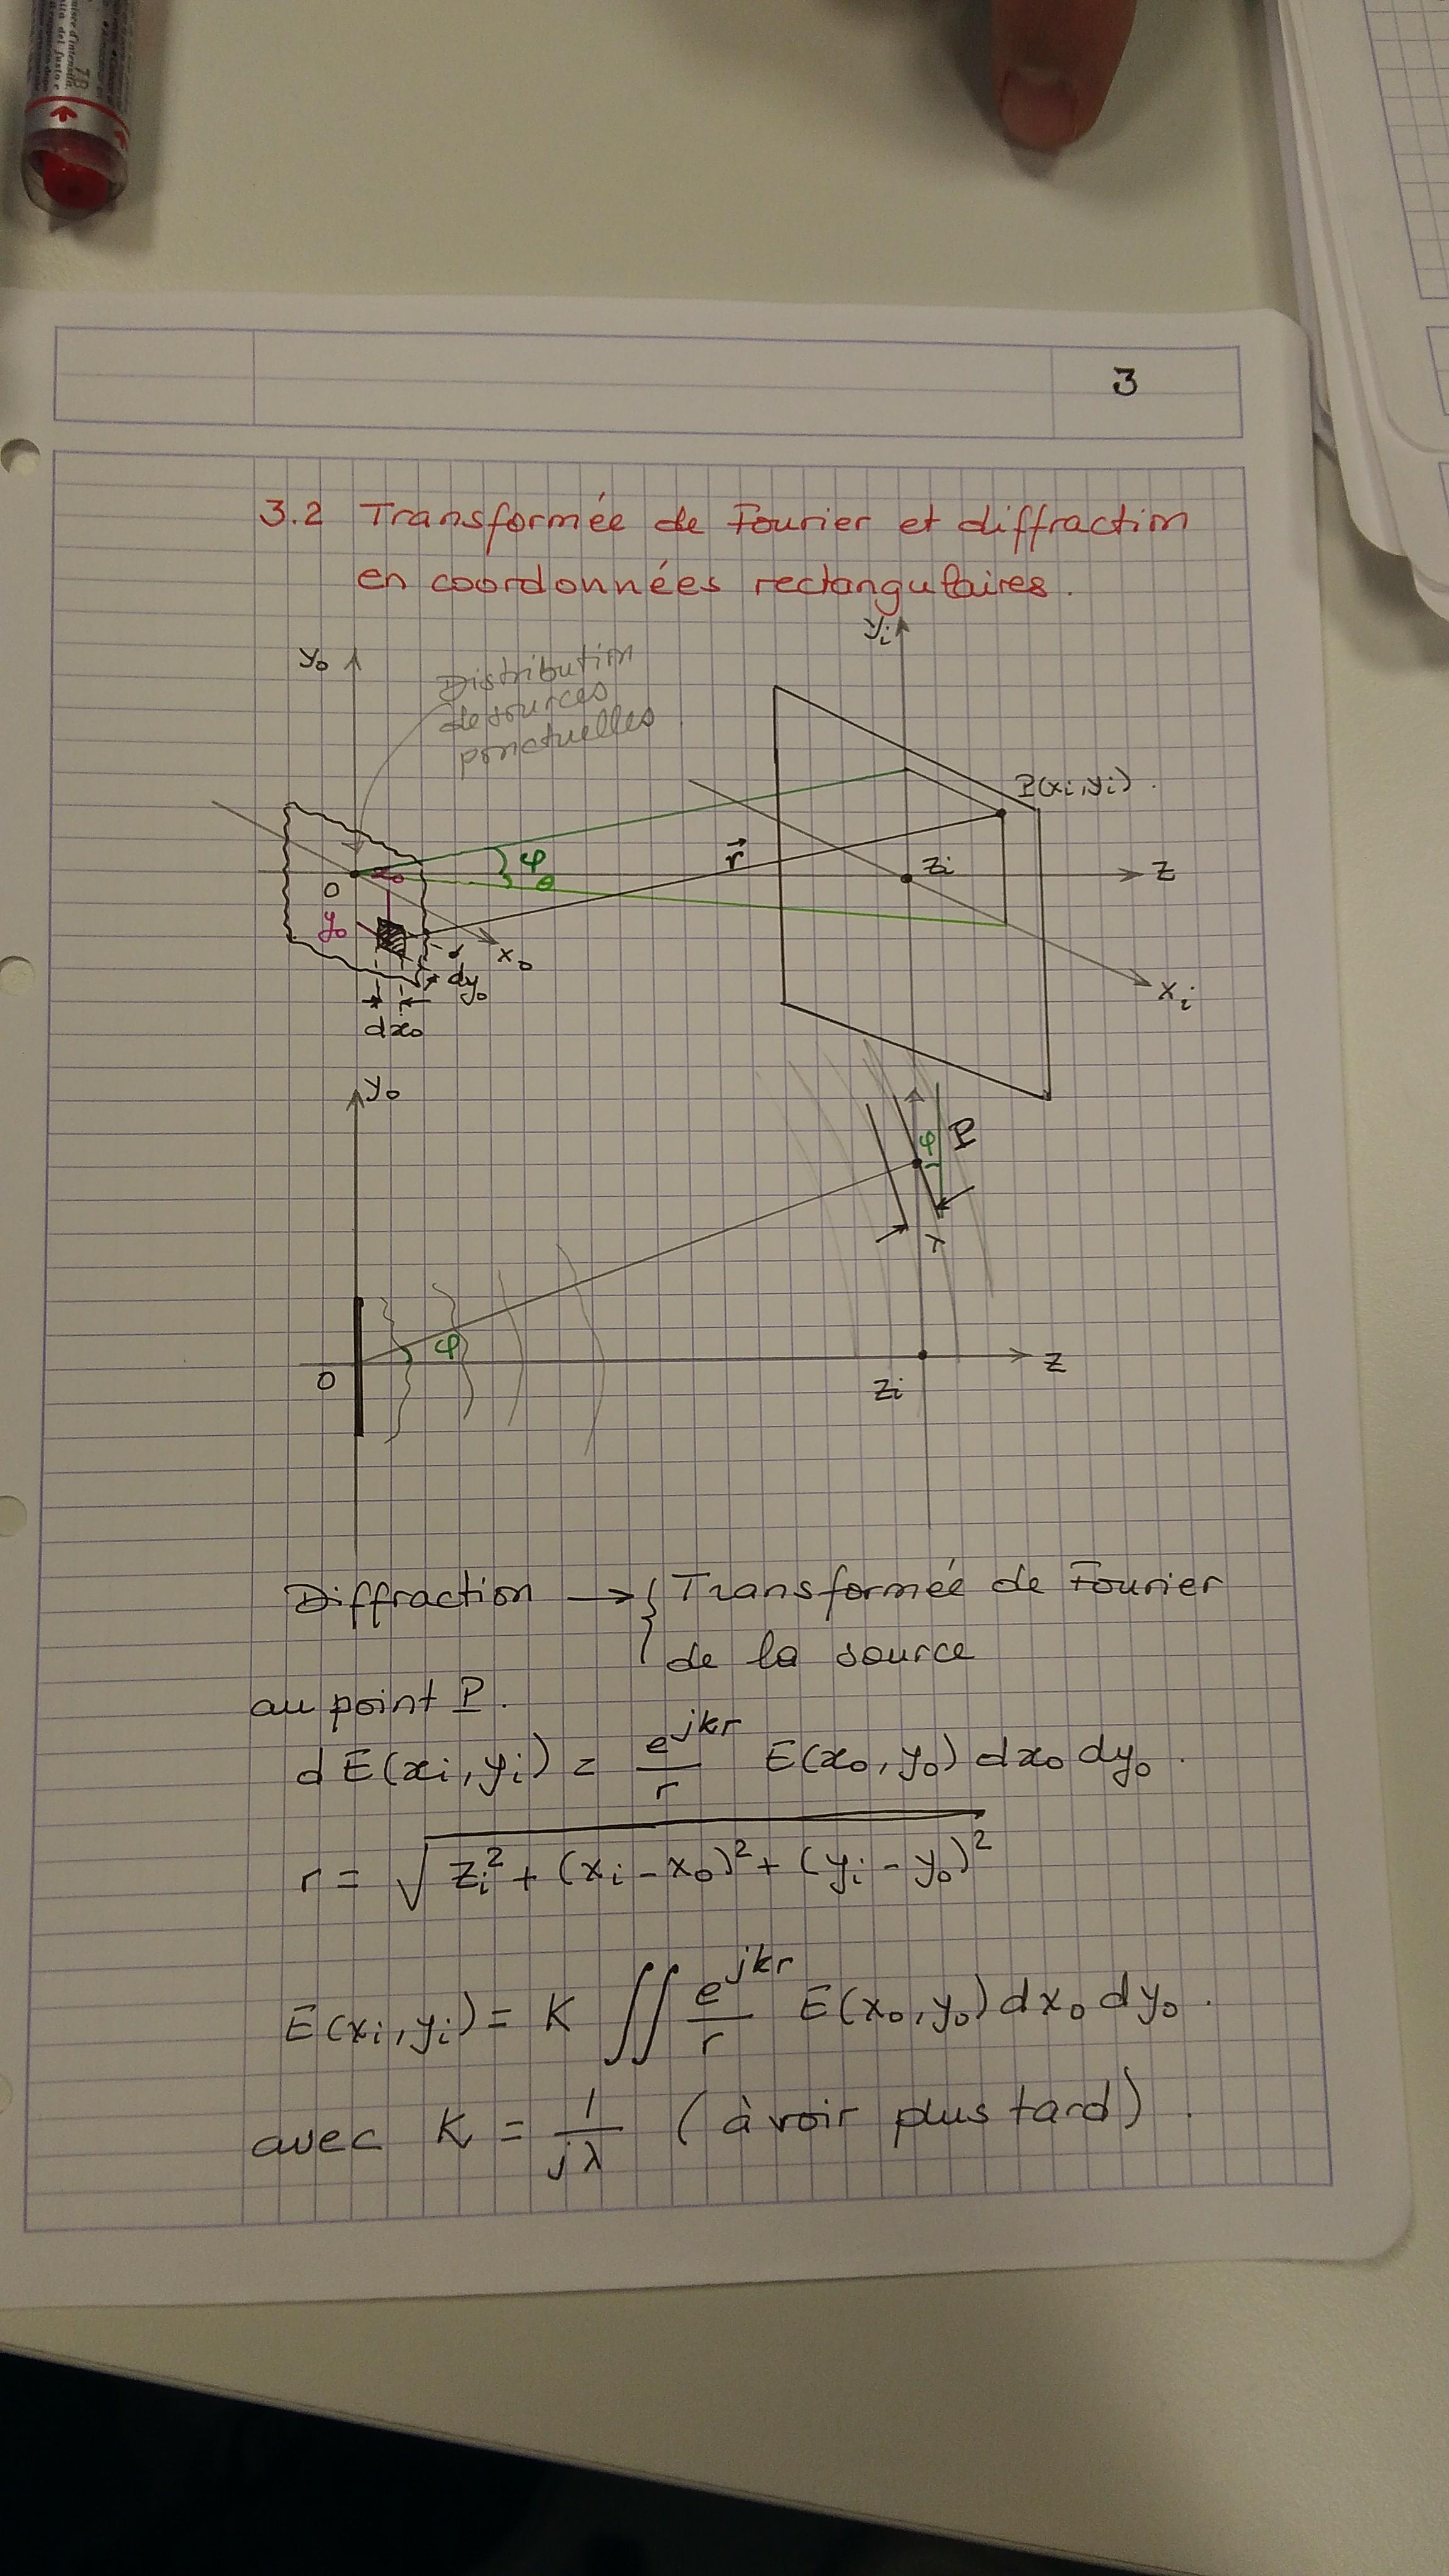 3
3.2 Transformée de Fourier et diffraction
en coordonnées rectangulaires.
yi
y₀
Distribution
de sources
ponctuelles
P(xi,yi).
φ
θ
r⃗
zi
z
0
x₀
y₀
x₀
dy₀
dx₀
xi
y₀
φ
P
λ
φ
0
zi
z
Diffraction → { Transformée de Fourier
de la source
au point P.
dE(xi,yi) = e^{jkr}/r E(x₀,y₀) dx₀ dy₀.
r = √(zi² + (xi - x₀)² + (yi - y₀)²)
E(xi,yi) = K ∬ e^{jkr}/r E(x₀,y₀) dx₀ dy₀.
avec K = 1/jλ (à voir plus tard).